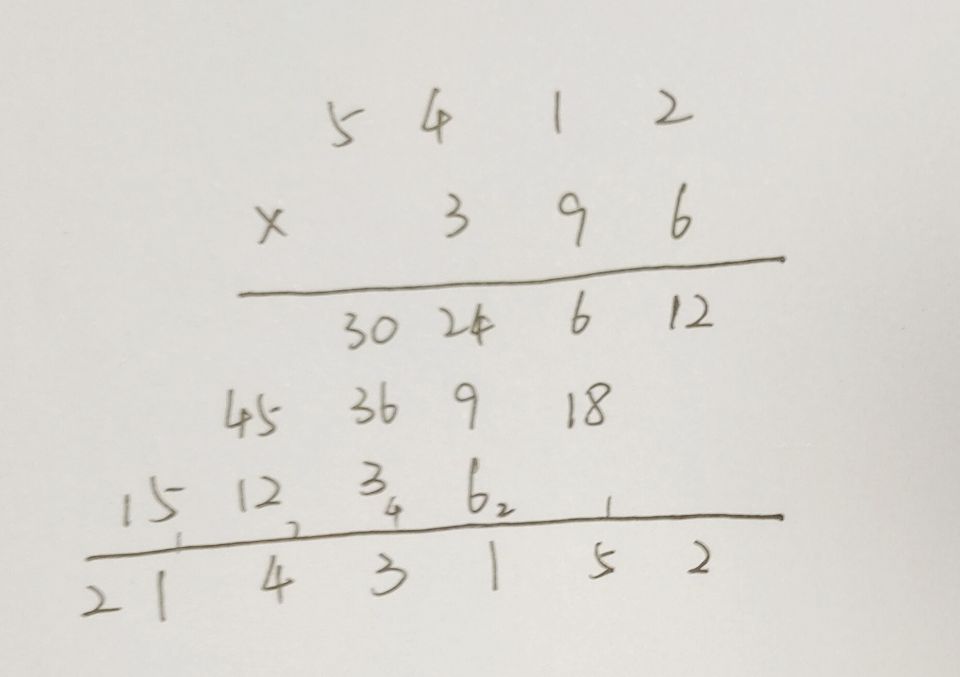 5 4 1 2
× 3 9 6
30 24 6 12
45 36 9 18
15 12 3 6
1 7 4 2 1
2 1 4 3 1 5 2